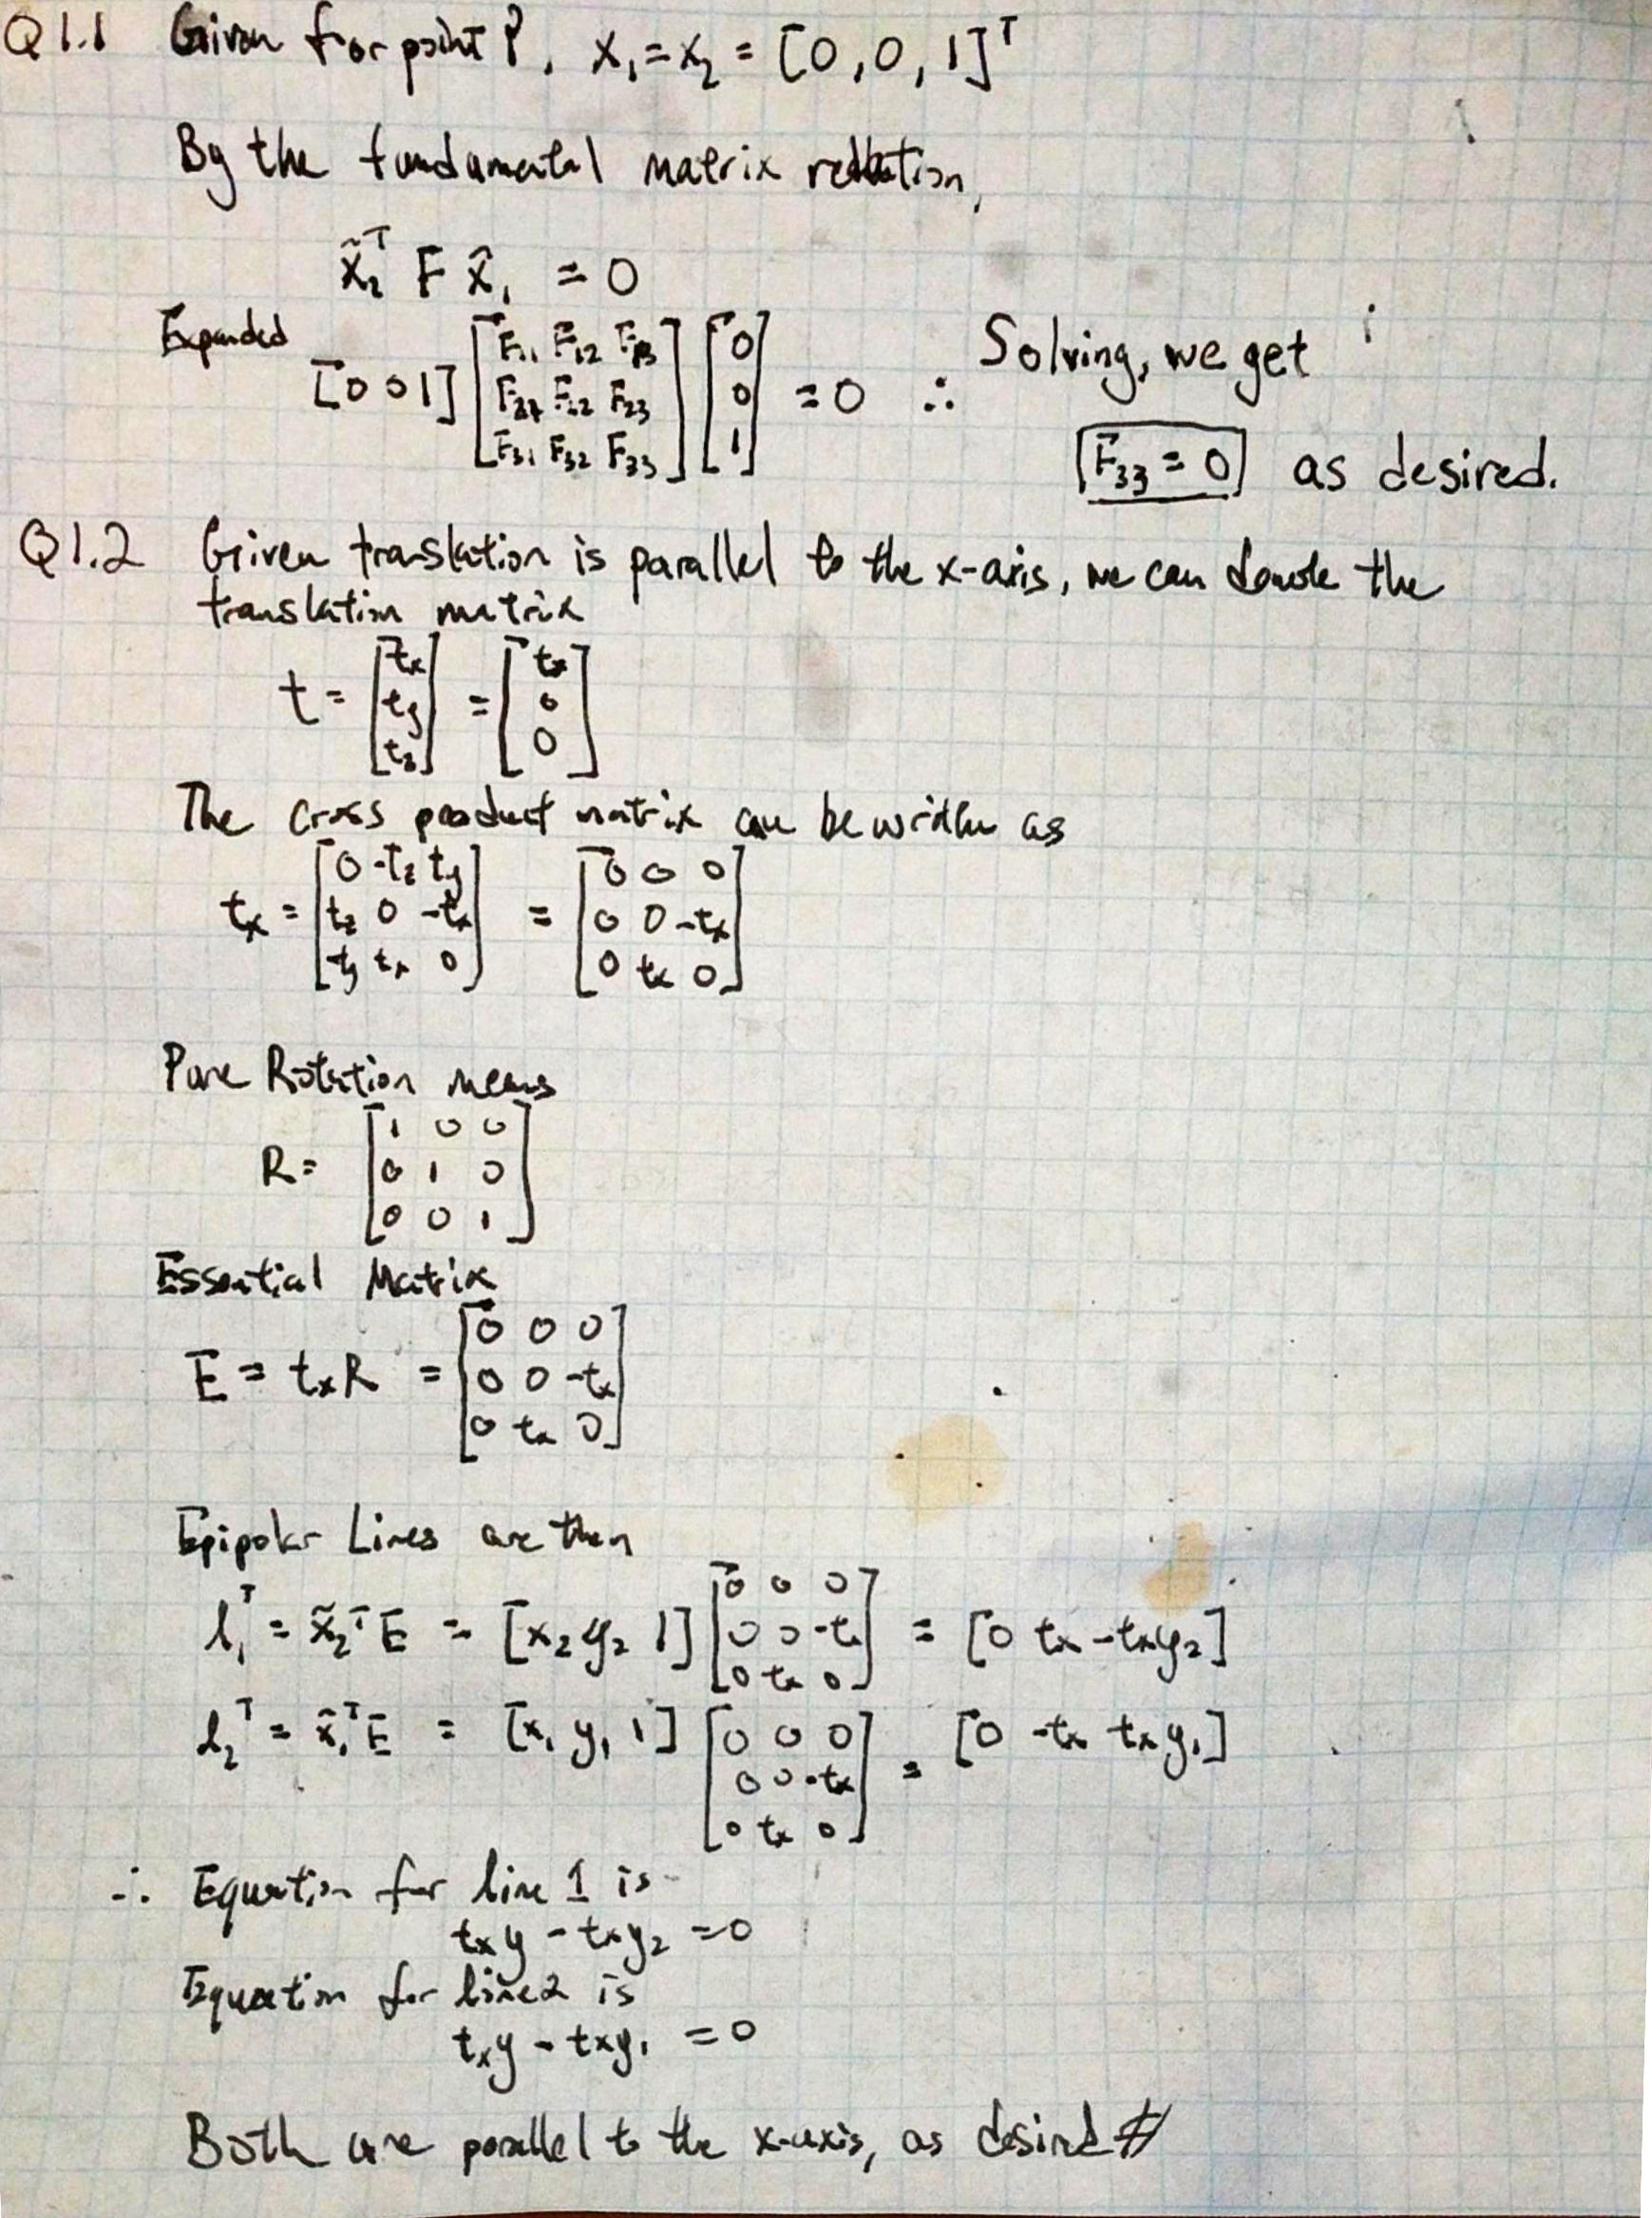 Q1.1 Given for point P, x₁=x₂ = [0,0,1]ᵀ
By the fundamental matrix relation,
x̃₂ᵀ F x̃₁ = 0
Expanded
[0 0 1] [F₁₁ F₁₂ F₁₃; F₂₁ F₂₂ F₂₃; F₃₁ F₃₂ F₃₃] [0; 0; 1] = 0 ∴ Solving, we get
F₃₃ = 0 as desired.
Q1.2 Given translation is parallel to the x-axis, we can denote the
translation matrix
t = [tx; ty; tz] = [tx; 0; 0]
The cross product matrix can be written as
tx = [0 -tz ty; tz 0 -tx; -ty tx 0] = [0 0 0; 0 0 -tx; 0 tx 0]
Pure Rotation means
R = [1 0 0; 0 1 0; 0 0 1]
Essential Matrix
E = txR = [0 0 0; 0 0 -tx; 0 tx 0]
Epipolar Lines are then
l₁ᵀ = x̃₂ᵀE = [x₂ y₂ 1] [0 0 0; 0 0 -tx; 0 tx 0] = [0 tx -txy₂]
l₂ᵀ = x̃₁ᵀE = [x₁ y₁ 1] [0 0 0; 0 0 -tx; 0 tx 0] = [0 -tx txy₁]
∴ Equation for line 1 is
txy - txy₂ = 0
Equation for line 2 is
txy - txy₁ = 0
Both are parallel to the x-axis, as desired #